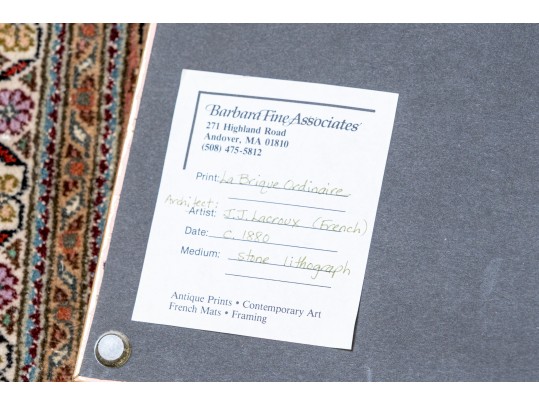 Barbara Fine Associates
271 Highland Road
Andover, MA 01810
(508) 475-5812
Print: La Brique Ordinaire
Architect:
Artist: J.J. Lacroux (French)
Date: c. 1880
Medium: stone lithograph
Antique Prints • Contemporary Art
French Mats • Framing